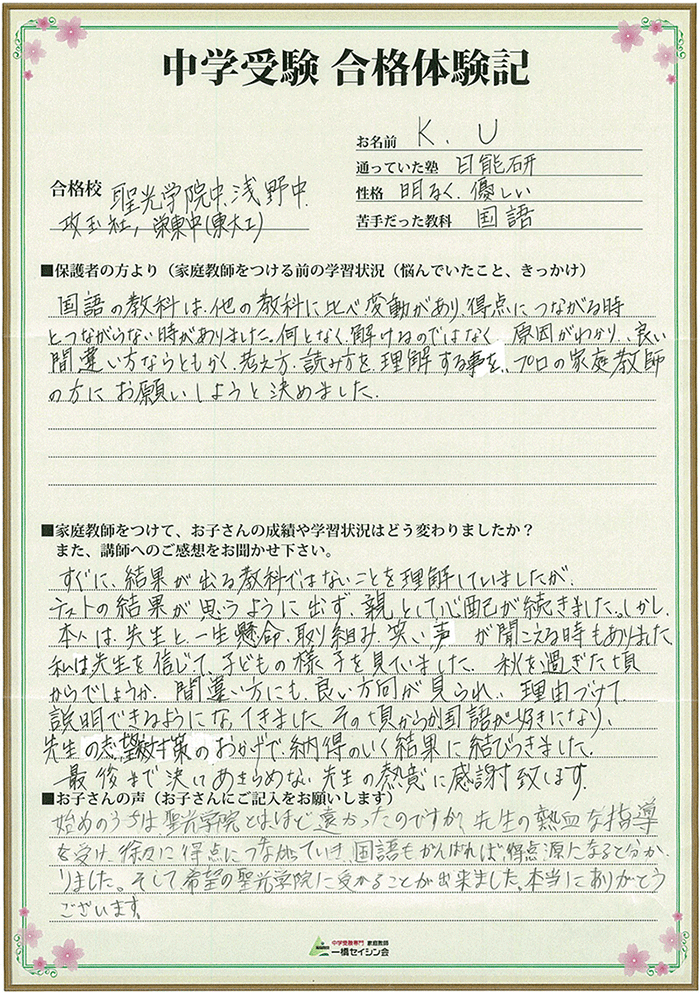 中学受験 合格体験記
お名前 K.U
通っていた塾 日能研
性格 明るく、優しい
苦手だった教科 国語
合格校 聖光学院中、浅野中、
攻玉社、栄東中(東大I)
■保護者の方より(家庭教師をつける前の学習状況(悩んでいたこと、きっかけ)
国語の教科は、他の教科に比べ変動があり、得点につながる時
とつながらない時がありました。何となく、解けるのではなく、原因がわかり、良い
間違い方ならともかく、考え方、読み方を、理解する事を、プロの家庭教師
の方にお願いしようと決めました。
■家庭教師をつけて、お子さんの成績や学習状況はどう変わりましたか?
また、講師へのご感想をお聞かせ下さい。
すぐに、結果が出る教科ではないことを理解していましたが、
テストの結果が思うように出ず、親として心配が続きました。しかし、
本人は、先生と、一生懸命、取り組み、笑い声が聞こえる時もありました。
私は先生を信じて、子どもの様子を見ていました。秋を過ぎた頃
からでしょうか、間違い方にも、良い方向が見られ、理由づけて
説明できるようになってきました。その頃からか国語が好きになり、
先生の志望校対策のおかげで、納得のいく結果に結びつきました。
最後まで決してあきらめない先生の熱意に感謝致します。
■お子さんの声(お子さんにご記入をお願いします)
始めのうちは聖光学院とはほど遠かったのですが、先生の熱血な指導
を受け、徐々に得点につながっていき、国語もがんばれば得点源になると分か
りました。そして希望の聖光学院に受かることが出来ました。本当にありがとう
ございます。
中学受験専門 家庭教師
一橋セイシン会